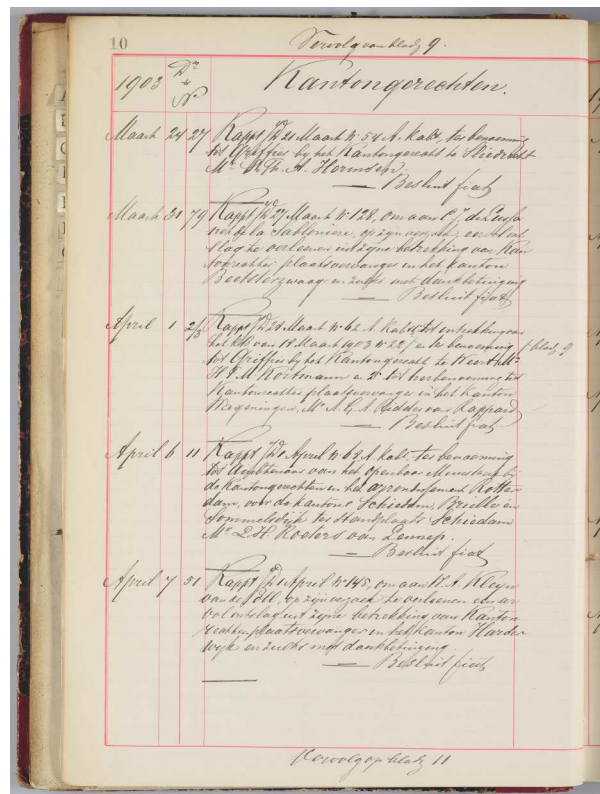 10
Vervolg van bladz 9.
1903
Dm
+
No
Kantongerechten.
Maart 24 27 Rappt J/D 21 Maart No 54 A. Kabt, ter benoeming
tot Griffier bij het Kantongerecht te Sliedrecht
Mr. Th. A. Hermsen.
— Besluit fiat
Maart 31 79 Rappt J/D 27 Maart No 128, om aan C. J. de
Sablonière, op zijn verzoek, eervol ont
slag te verleenen uit zijne betrekking van Kan
tonrechter plaatsvervanger in het kanton
Beetsterzwaag en zulks met dankbetuiging
— Besluit fiat
April 1 2/3 Rappt J/D 28 Maart No 62 A. Kabt tot intrekking van
het kb. van 18 Maart 1903 No 22, en benoeming / bladz 9
tot Griffier bij het Kantongerecht te Weert Mr
H. F. M. Kortmann en 2o tot herbenoeming tot
Kantonrechter plaatsvervanger in het kanton
Wageningen, Mr A. G. A. Ridder van Rappard
— Besluit fiat
April 6 11 Rappt J/D 1 April No 68 A. Kabt. ter benoeming
tot Ambtenaar van het Openbaar Ministerie bij
de Kantongerechten in het arrondissement Rotter
dam, voor de kantons Schiedam, Brielle en
Sommelsdijk ter Standplaats Schiedam
Mr L. H. Roeters van Lennep.
— Besluit fiat
April 7 51 Rappt J/D 1 April No 145, om aan H. A. Kleyn
van de Poll, op zijn verzoek te verleenen een eer
vol ontslag uit zijne betrekking van Kanton
rechter plaatsvervanger in het Kanton Harder
wijk en zulks met dankbetuiging.
— Besluit fiat
Vervolg op bladz 11